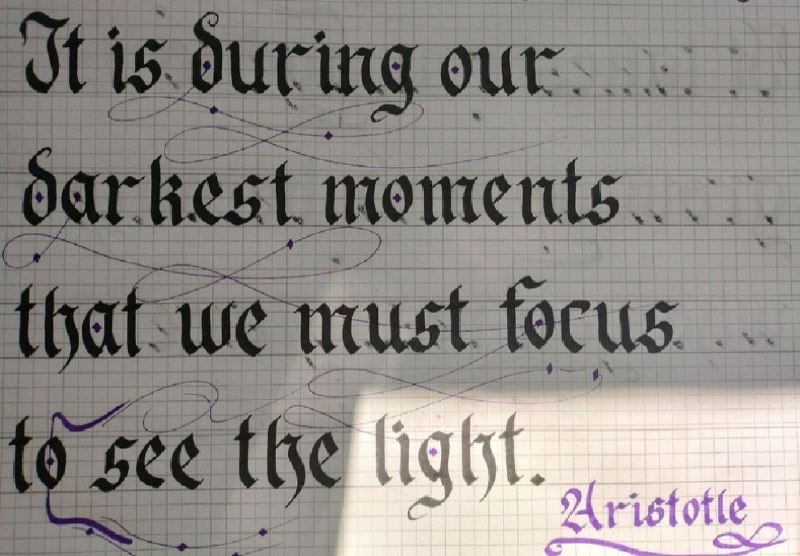 It is during our
darkest moments
that we must focus
to see the light.
Aristotle